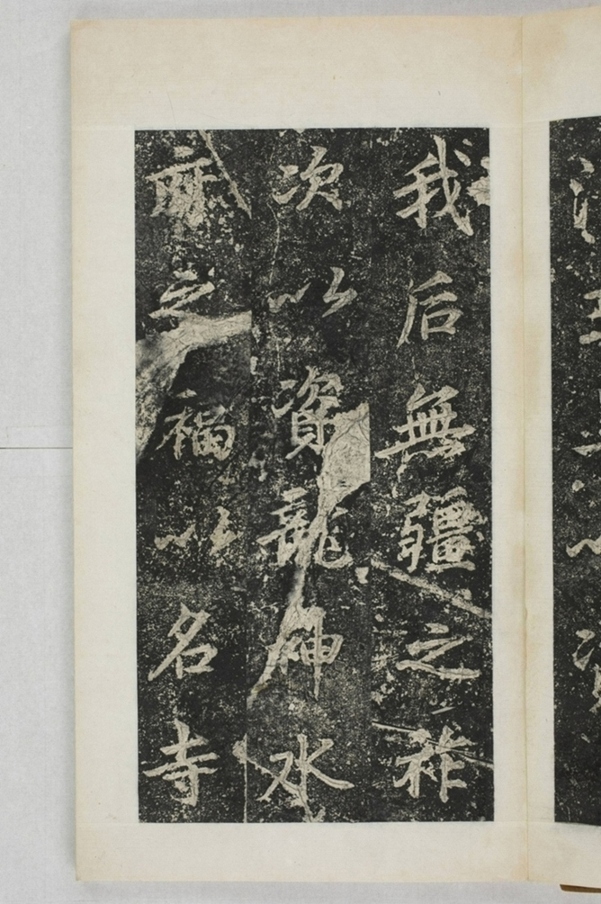 我后無疆之祚
次以資龍神水
府之福以名寺